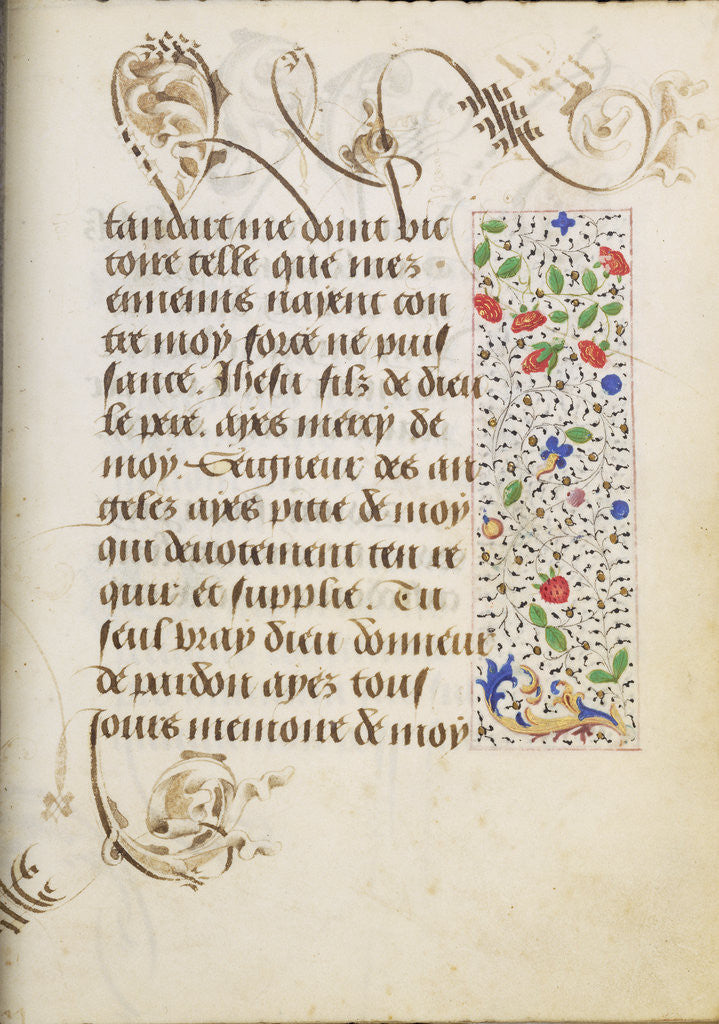 tandart me doint vic
toire telle que mez
ennemis naient con
tre moy force ne puis
sance. Ihesu filz de dieu
le pere. ayes mercy de
moy. Seigneur des an
gelez ayes pitie de moy
qui deuotement ten re
quir et supplie. Tu
seul vray dieu donneur
de pardon ayez tous
iours memoire de moy